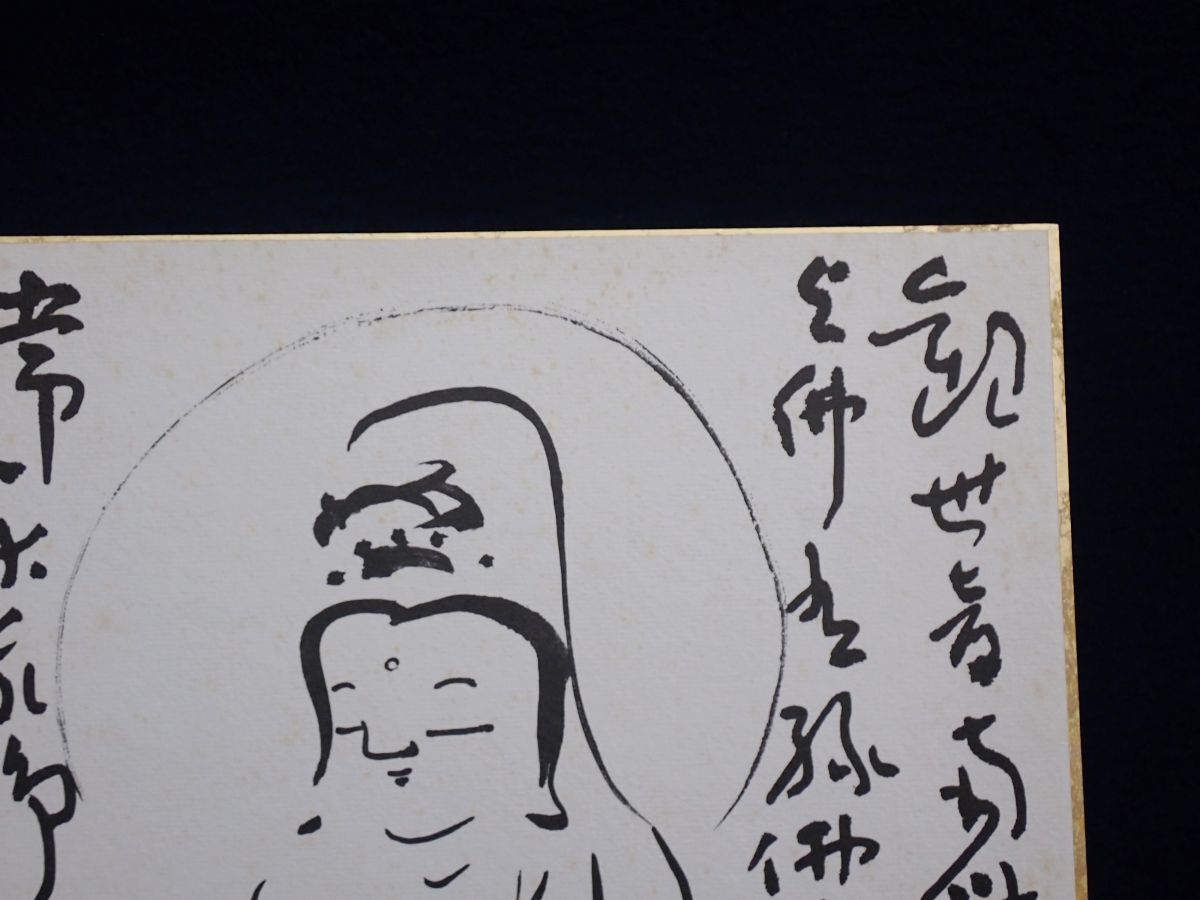 観世音南無
与佛有縁佛
常楽我